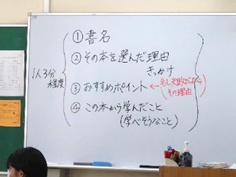 1人3分
程度
①書名
②その本を選んだ理由
きっかけ
③おすすめポイント
その理由
④この本から学んだこと
(学べそうなこと)